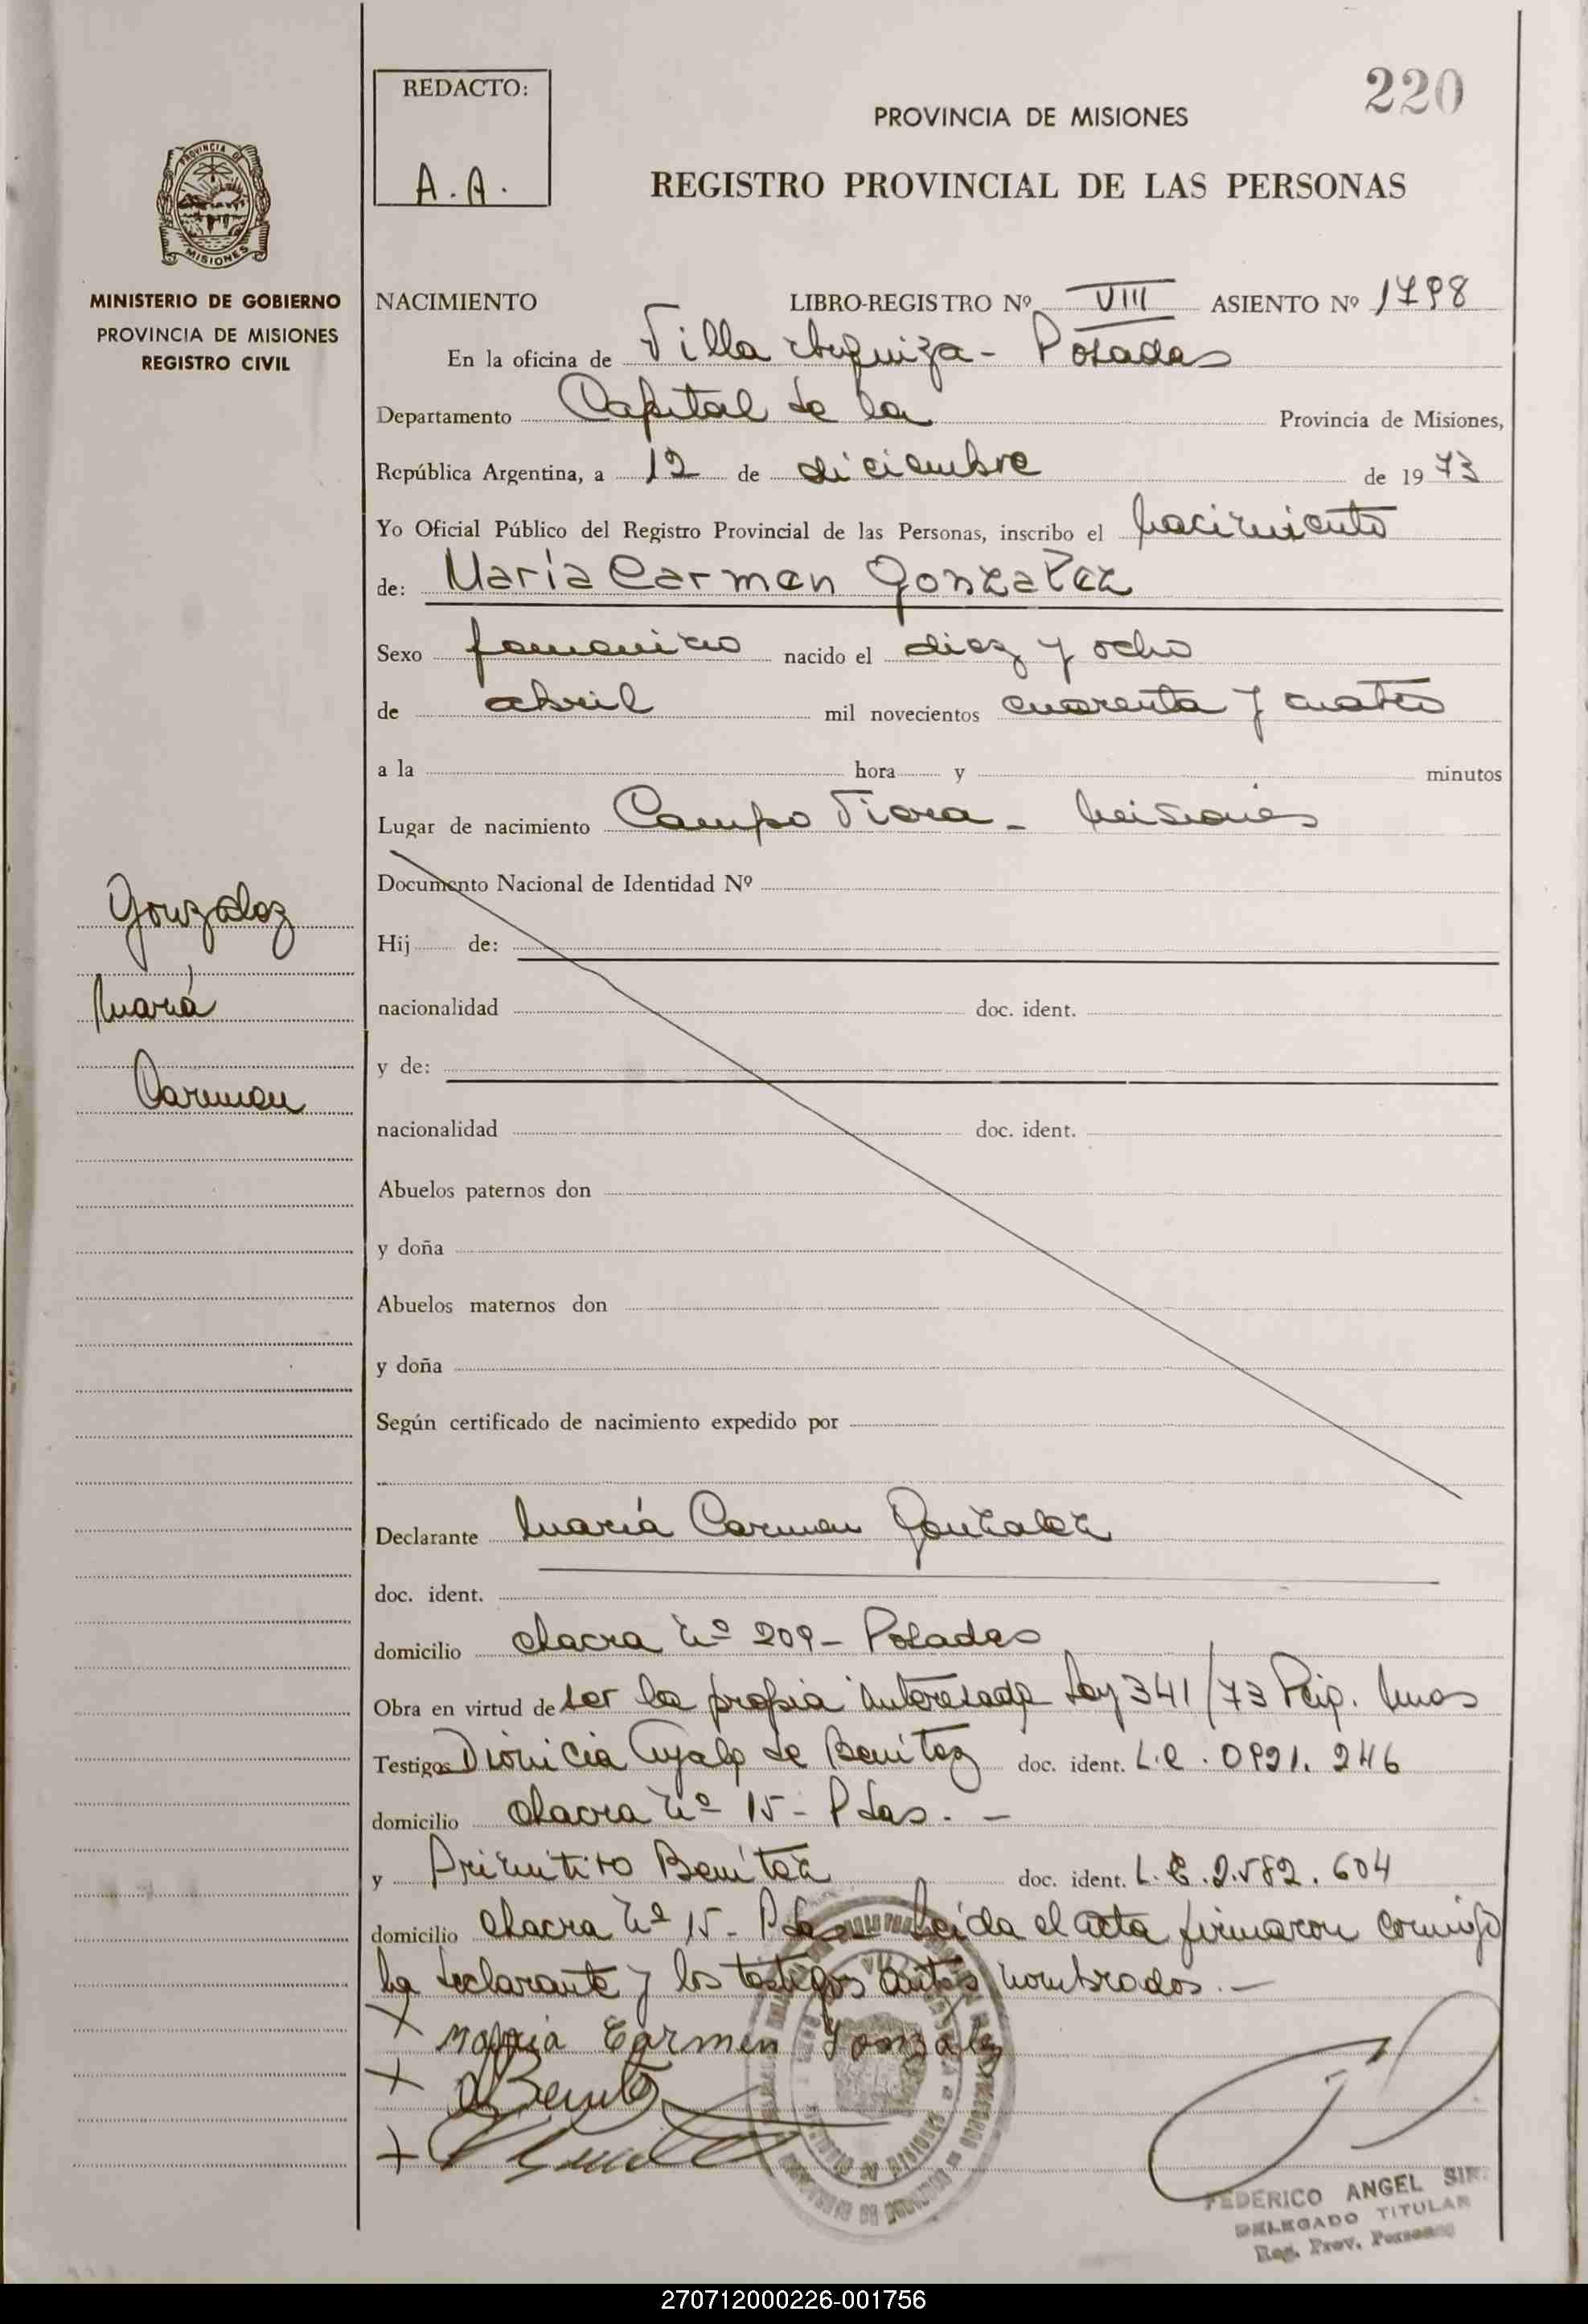 220
REDACTO:
A.A.
PROVINCIA DE MISIONES
REGISTRO PROVINCIAL DE LAS PERSONAS
PROVINCIA DE
MISIONES
MINISTERIO DE GOBIERNO
PROVINCIA DE MISIONES
REGISTRO CIVIL
NACIMIENTO LIBRO-REGISTRO Nº VIII ASIENTO Nº 1798
En la oficina de Villa Urquiza - Posadas
Departamento Capital de la Provincia de Misiones,
República Argentina, a 12 de diciembre de 1973
Yo Oficial Público del Registro Provincial de las Personas, inscribo el nacimiento
de: María Carmen Gonzalez
Sexo femenino nacido el diez y ocho
de abril mil novecientos cuarenta y cuatro
a la hora y minutos
Lugar de nacimiento Campo Viera - Misiones
Documento Nacional de Identidad Nº
Gonzalez
María
Carmen
Hij de:
nacionalidad doc. ident.
y de:
nacionalidad doc. ident.
Abuelos paternos don
y doña
Abuelos maternos don
y doña
Según certificado de nacimiento expedido por
Declarante María Carmen Gonzalez
doc. ident.
domicilio chacra nº 209 - Posadas
Obra en virtud de ser la propia interesada Ley 341/73
Testigos Dionicia Ayala de Benitez doc. ident. L.C. 0921.246
domicilio chacra nº 15 - Pdas. -
y Primitivo Benitez doc. ident. L.E. 2.582.604
domicilio chacra nº 15 - Pdas Leida el acta firmaron conmigo
la declarante y los testigos antes nombrados. -
X Maria Carmen Gonzalez
X Benitez
X
FEDERICO ANGEL
DELEGADO TITULAR
Reg. Prov. Personas
270712000226-001756